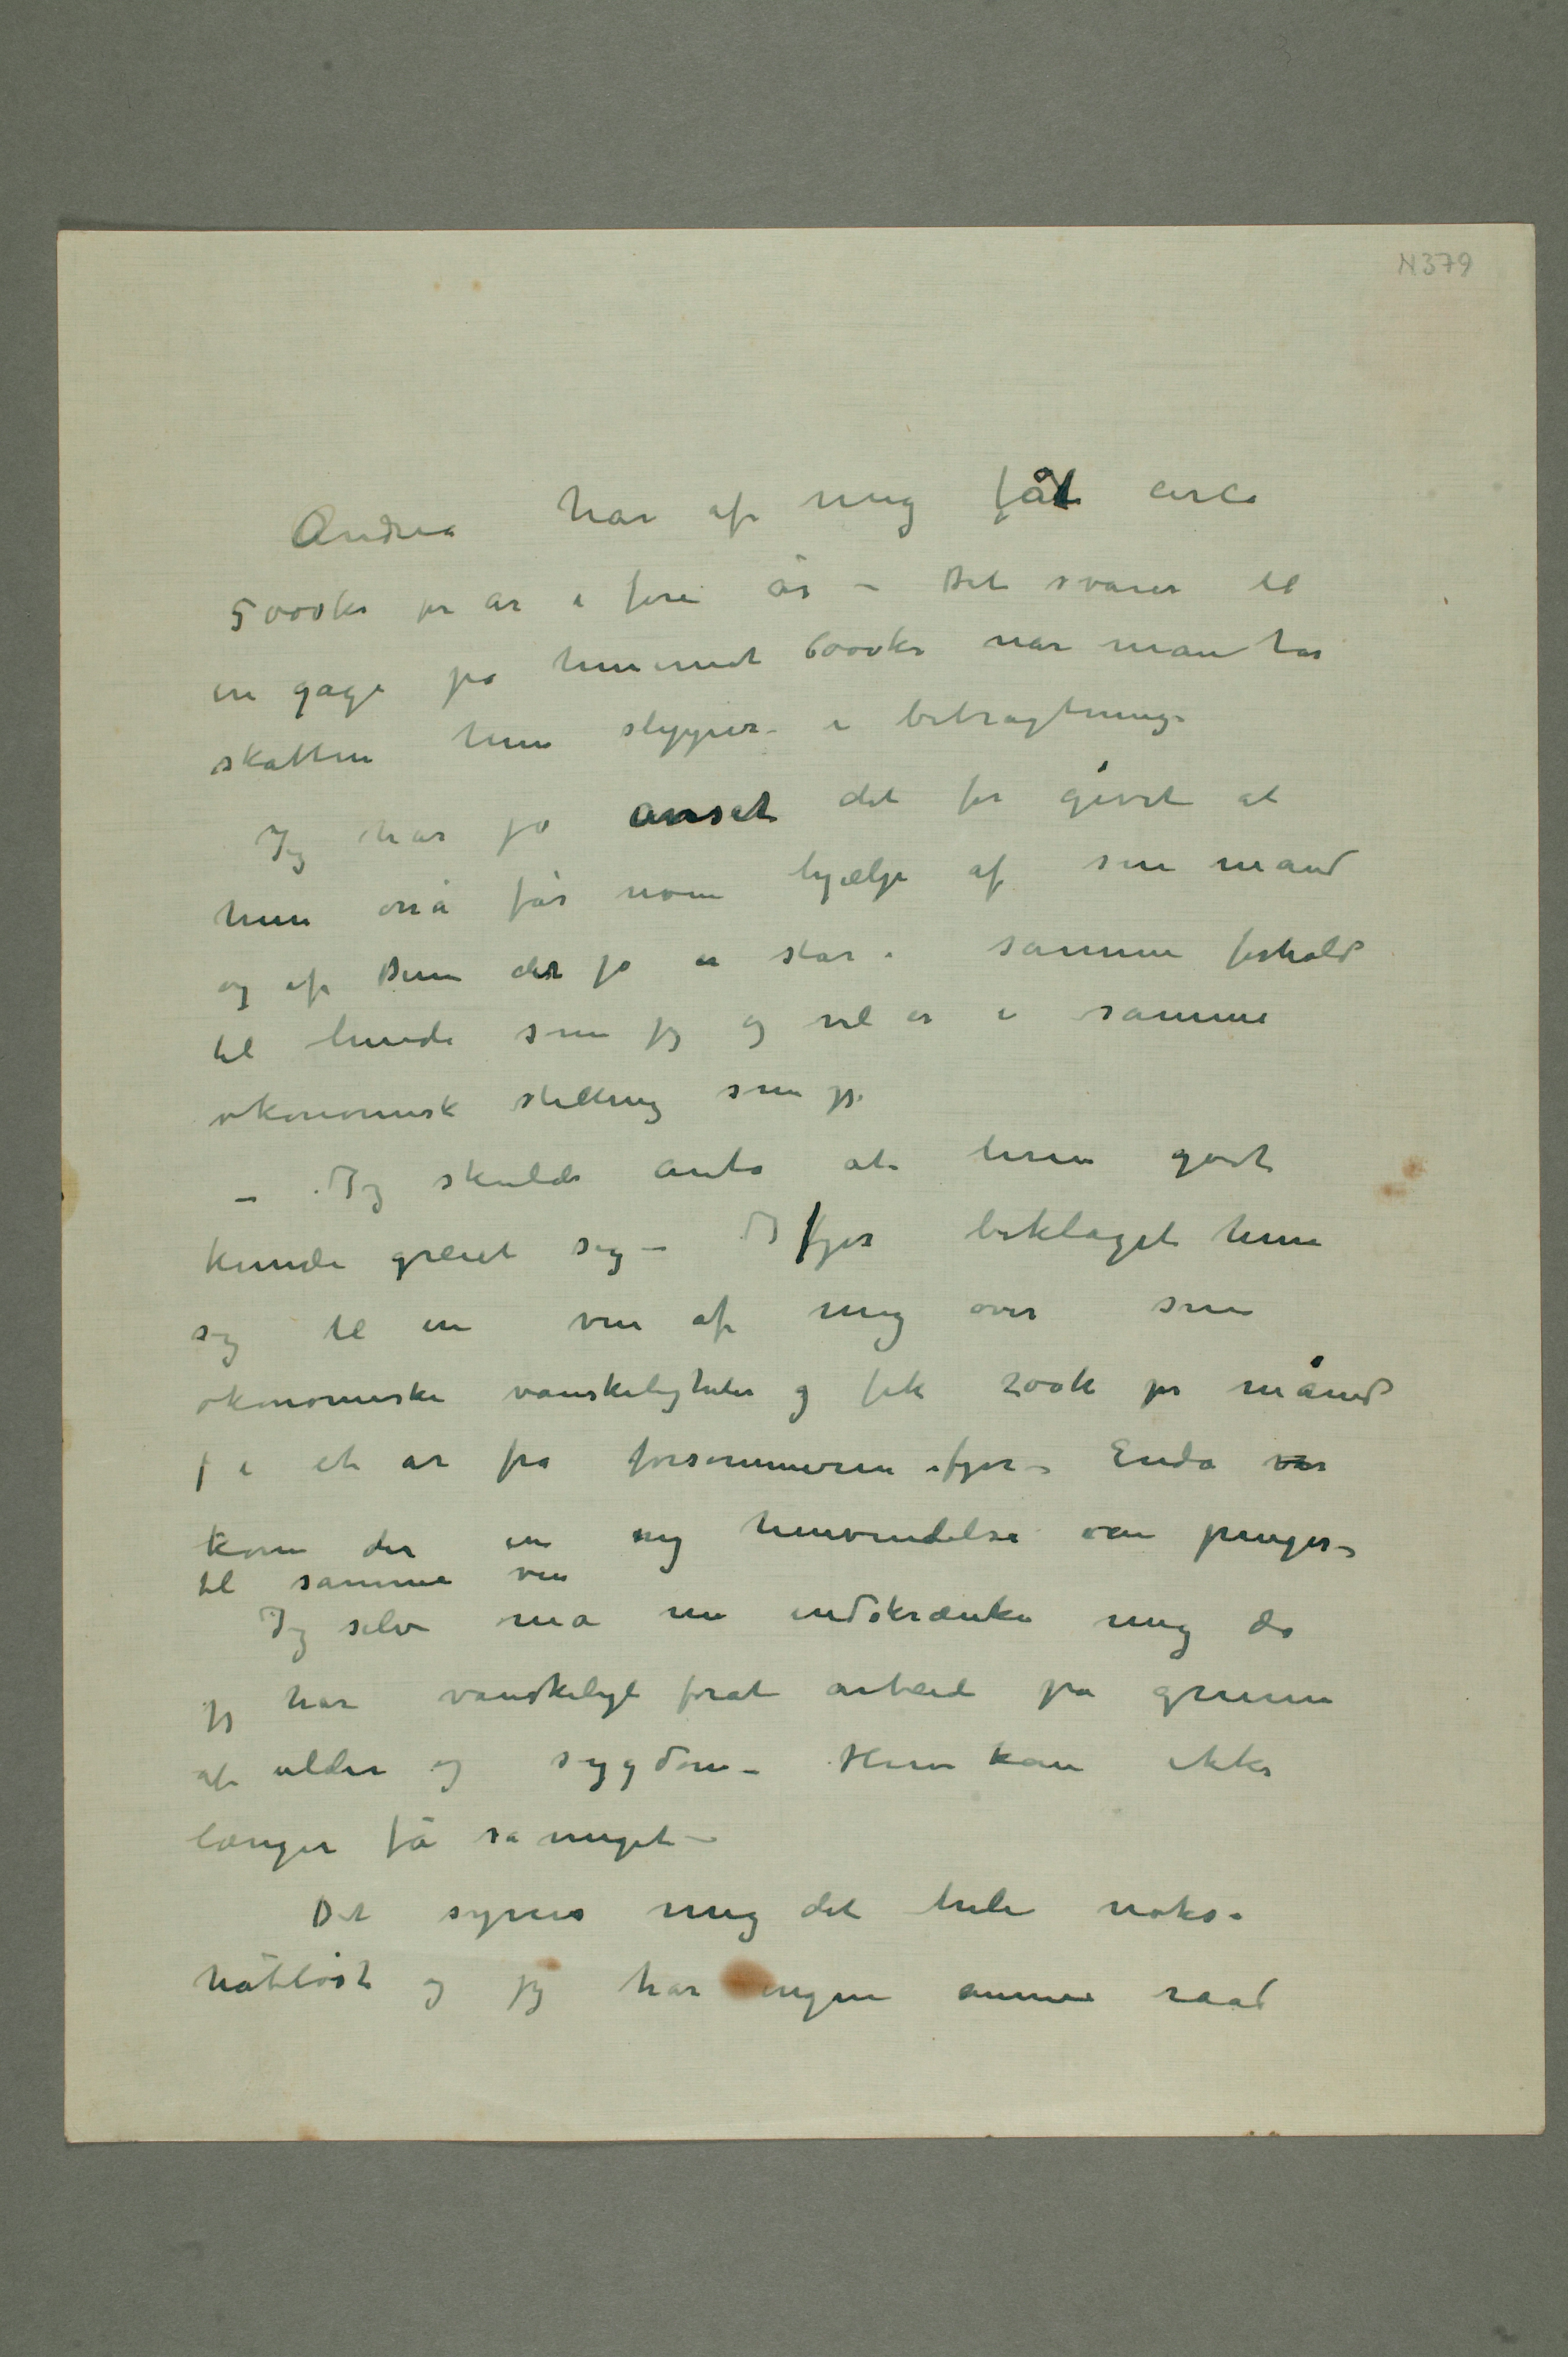 N 379
Andrea har af mig fåt circa
5000kr pr år i fire år – Det svarer til
en gage på henimot 6000kr når man tar
skatten hun slipper i betragtning.
Jeg har jo anset det for givet at
hun må får noen hjælp af sin mand
og af Dem der jo er står i samme forhold
til hende som jeg og vel er i samme
økonomisk stilling som jeg.
– Jeg skulde anta at hun godt
kunde greiet sig – I fjor beklaget hun
sig til en ven af mig over sine
økonomiske vanskeligheter og fik 200k pr måned
i et år fra forsommeren ifjor – Enda var
kom der en ny henvendelse om penger –
til samme ven
Jeg selv må nu indskrænke mig da
jeg har vanskeligt forat arbeide på grunn
af alder og sygdom – Hun kan ikke
længer få så meget –
Det synes mig det hele nokså
håbløst og jeg har ingen annen raad